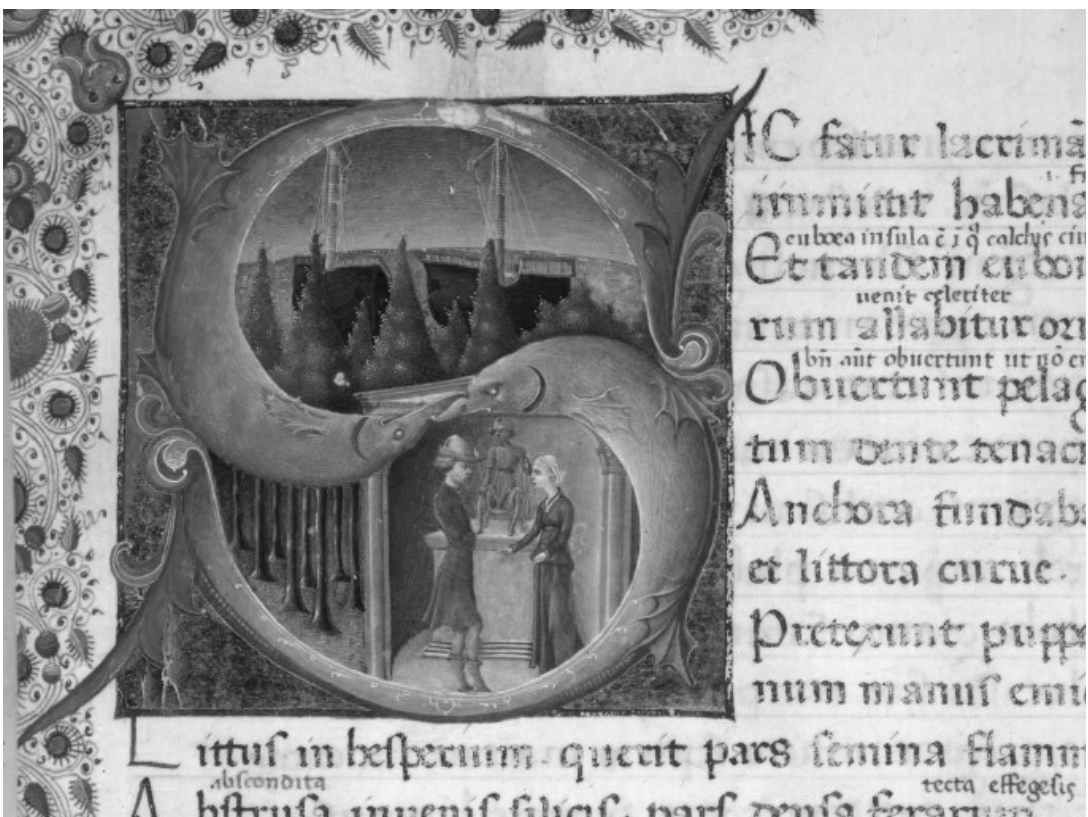 SIC fatur lacrimā
immittit habena
euboea insula ē ī q̄ calchis ciu
Et tandem euboi
uenit celeriter
rum allabitur or
bn̄ aūt obuertunt ut nō
Obuertunt pelag
tum dente tenaci
Anchora fundaba
et littora curue.
Pretexunt puppe
num manus emi
Littus in hesperium. querit pars semina flamm
abscondita tecta effegesis
Abstrusa in uenis silicis. pars densa ferarum